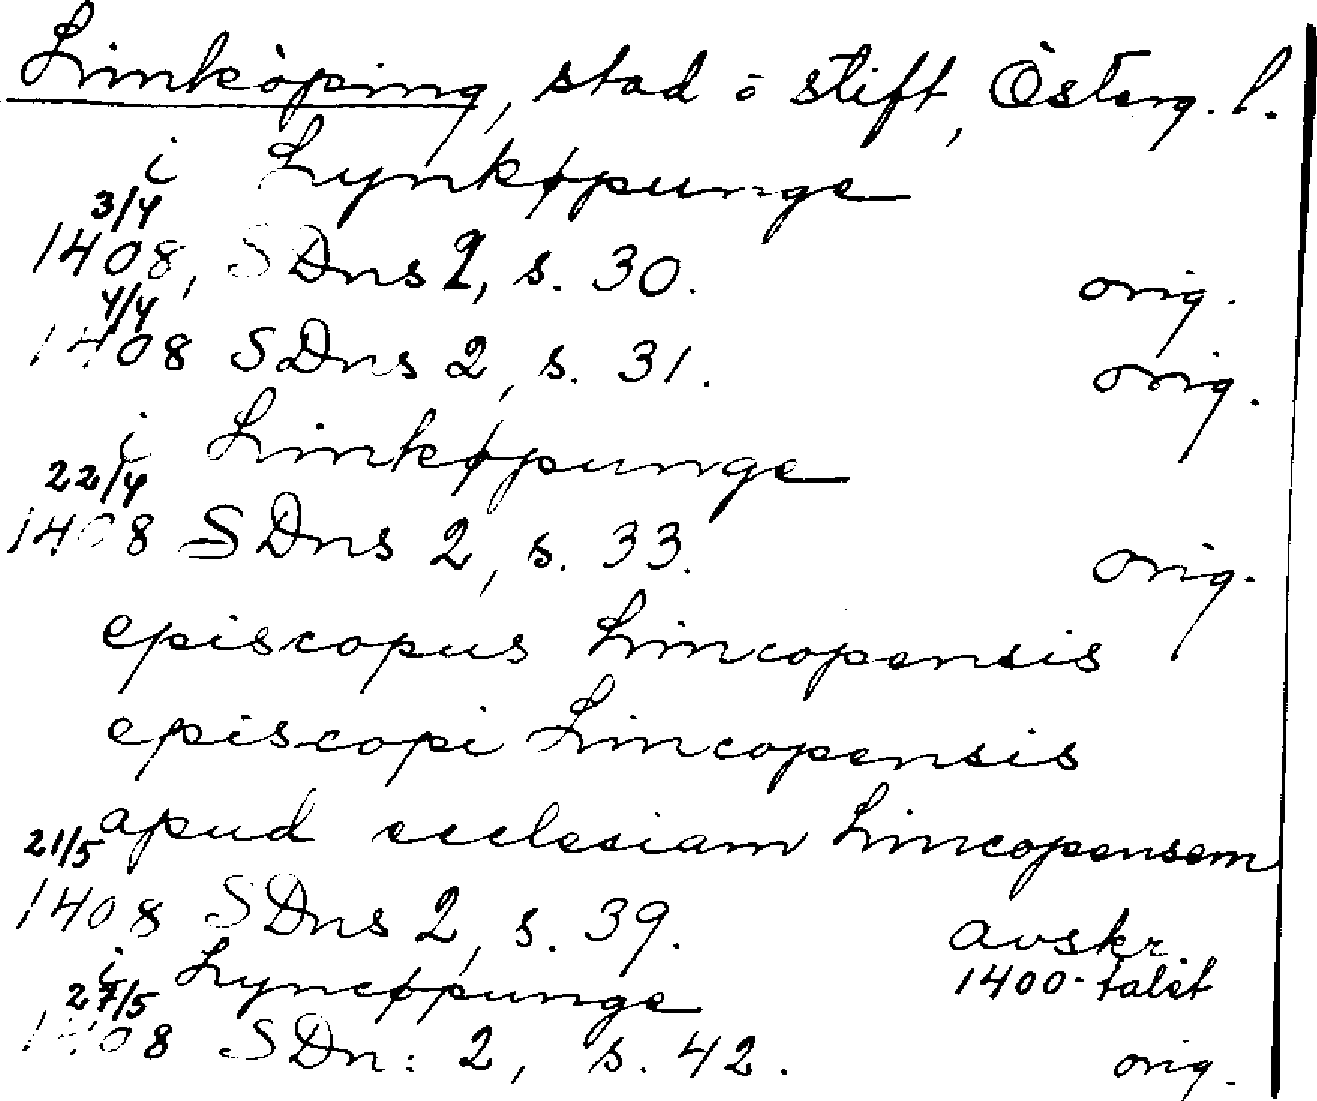 Linköping, stad o stift, Österg. l.
i Lynkøpunge
3/4
1408, SDns 2, s. 30. orig.
4/4
1408 SDns 2, s. 31. orig.
i Linkøpunge
22/4
1408 SDns 2, s. 33. orig.
episcopus Lincopensis
episcopi Lincopensis
apud ecclesiam Lincopensem
21/5
1408 SDns 2, s. 39. avskr.
1400-talet
i Lyncøpunge
27/5
1408 SDn: 2, s. 42. orig.